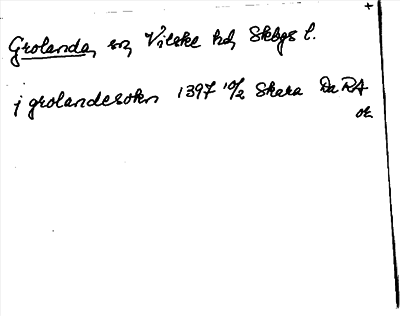 Grolanda, sn, Vilske hd, Skbgs l.
j grolandesokn 1397 10/2 Skara Da RA
or.